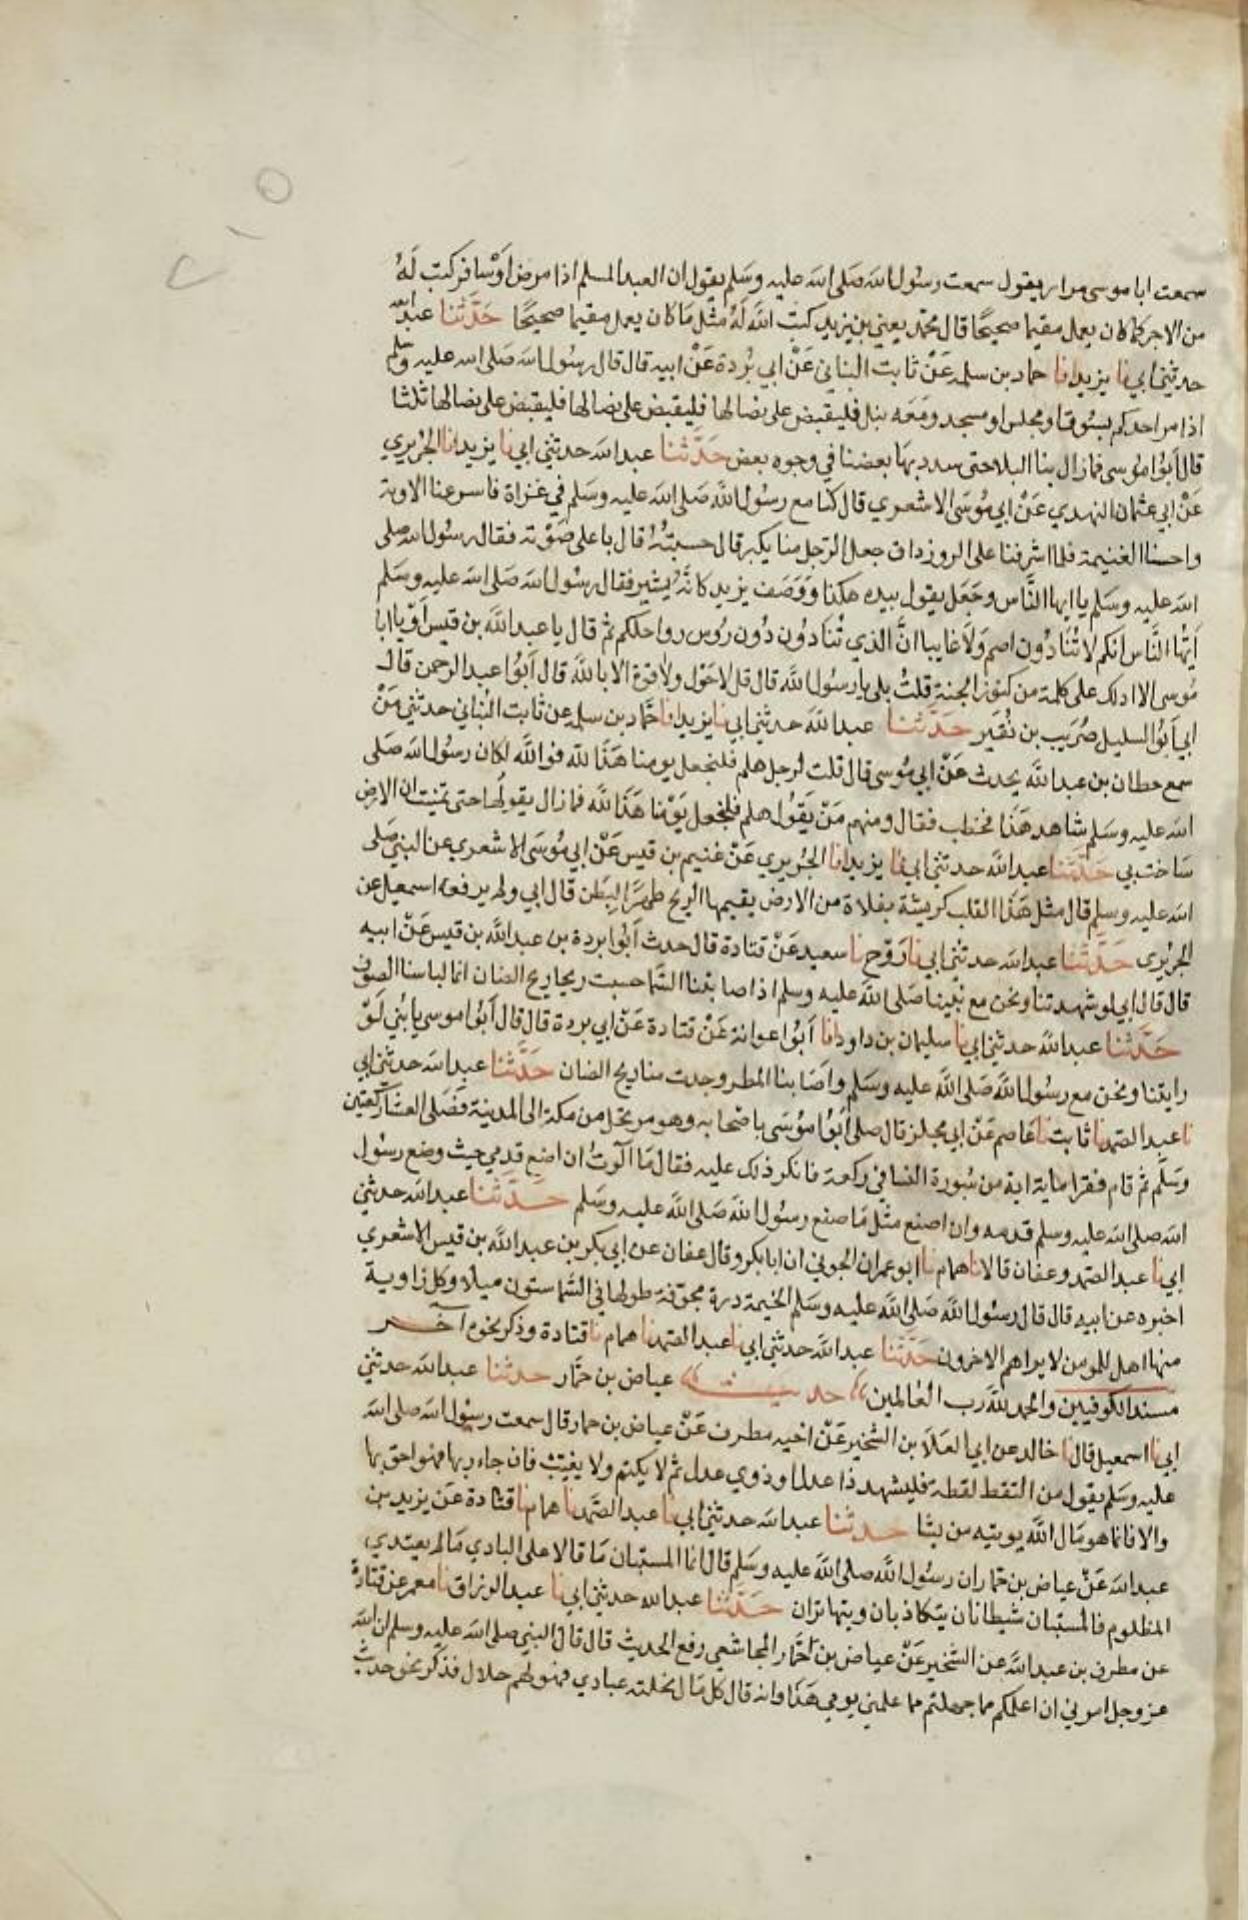 سمعت ابا موسى مرارا يقول سمعت رسول الله صَلى الله عليه وسَلم يقول ان العبد المسلم اذا مرض اوْ سافر كتب لَهُ
من الاجر كما كان يعمل مقيما صحيحًا قال محمد يعني بن يزيد كتبَ اللهُ لَهُ مثل مَا كان يعمل مقيما صحيحًا حَدَّثنا عبد الله
حدثني ابي نا يزيد انا حماد بن سلمه عَنْ ثابت البناني عَنْ ابي بُردة عَنْ ابيه قال قال رسُول الله صَلى الله عليه وسلم
اذا مر احدكم بسُوق او مجلس او مسجد ومَعَه نبل فليقبض على نصالها فليقبض على نصالها فليقبض على نصالها ثلثا
قال أبُو موسى فما زال بنا البلا حتى سدد بهَا بعضنا في وجوه بعض حَدَّثنا عبد الله حدثني ابي نا يزيد انا الجُرَيري
عَنْ ابي عثمان النهدي عَنْ ابي مُوسَى الاشعري قال كنا مع رسُول اللهِ صَلى الله عليه وسَلم في غزاة فاسرعنا الاوبة
واحسنا الغنيمة فلما اشرفنا على الروزداق جعل الرّجل منا يكبر قال حسبتُهُ قال باعلى صَوْته فقال رسُول الله صلى
الله عليه وسَلم يا ايها النَّاس وجَعَل يقول بيده هكذا وَوَصَف يزيد كانَّهُ يُشير فقال رسُول الله صَلى الله عليه وسَلم
أيُّها النَّاس انكم لا تُنَادُون اصم وَلا غايبا انَّ الذي تُنادُون دُون رُوس رواحلكم ثم قال يا عبد اللَّه بن قيس أوْ يا ابا
مُوسى الا ادلك على كلمة من كنوز الجنة قلتُ بلى يا رسُول اللَّه قال قل لا حَوْل ولا قوة الا بالله قال أبُوا عبد الرحمن قال
ابي أبُو السليل ضُرَيب بن نُقَير حَدَّثنا عبد الله حدثني ابي نا يزيد انا حمَّاد بن سلمه عن ثابت البُناني حدثني مَنْ
سمع حطان بن عبد اللَّه يحدث عَنْ ابي مُوسى قال قلت لرجل هلم فلنجعل يومنا هَذا للَّه فوالله لكان رسُول الله صَلى
الله عليه وسَلم شاهد هَذا فخطب فقال ومنهم مَنْ يَقُول هلم فلنجعل يَوْمنا هَذا للَّه فما زال يقولُها حتى تمنيت ان الارض
سَاخت بي حَدَّثنا عبد اللَّه حدثني ابي نا يزيد انا الجُرَيري عَنْ غنيم بن قيس عَنْ ابي مُوسَى الاشعري عن النبي صَلى
الله عليه وسلم قال مثل هَذا القلب كريشة بفلاة من الارض يقيمها الريح ظهرًا لبَطن قال ابي ولم يرفعه اسمعيل عن
الجرَيرى حَدَّثنا عبد الله حدثني ابي نا رَوْح نا سعيد عَنْ قتادة قال حدث أبُوا بردة بن عبد اللَّه بن قيس عَنْ ابيه
قال قال ابي لو شهدتنا ونحن مع نبينا صَلى اللَّه عليه وسلم اذا اصابتنا السَّما حسبت ريحنا ريح الضان انما لباسنا الصوف
حَدَّثنا عبد اللَّه حدثني ابي نا سليمان بن داود انا أبُوا عوانة عَنْ قتادة عَنْ ابي بردة قال قال أبُوا موسى يا بُني لَوْ
رايتنا ونحن مع رسُول اللَّه صَلى اللَّه عليه وسَلم واصَابنا المطر وجدت منا ريح الضان حَدَّثنا عبد الله حدثني ابي
نا عبد الصّمد نا ثابت نا عَاصم عَنْ ابي مجلز قال صلى أبُوا مُوسَى باصْحابه وهو مرتحل من مكة الى المدينة فصَلى العشا ركعتين
وسَلَّم ثم قام فقرا ماية اية من سُورة النسا في ركعة فانكر ذلك عليه فقال مَا آلَوتُ ان اضع قدمي حيث وضع رسُول
الله صلى الله عليه وسلم قدمه وان اصنع مثل مَا صنع رسُول الله صَلى اللَّه عليه وسَلم حَدَّثنا عبد الله حدثني
ابي نا عبد الصّمد وعفان قالا نا همام نا ابو عمران الجوني ان ابا بكر وقال عفان عن ابي بكر بن عبد اللَّه بن قيس الاشعري
اخبره عن ابيه قال قال رسُول اللَّه صَلى اللَّه عليه وسَلم الخيمة درة مجوّفة طولها في السَّما ستون ميلا وكل زاوية
منها اهل للمومن لا يراهم الاخرون حَدَّثنا عبد اللَّه حدثني ابي نا عبد الصّمد نا همام نا قتادة وذكر نحوه آخـــر
مسند الكوفيين والحمد للَّه رب العالمين حديث عياض بن حمَّار حدثنا عبد الله حدثني
ابي نا اسمعيل قال نا خالد عن ابي العَلا بن الشخير عَنْ اخيه مطرف عَنْ عياض بن حمار قال سمعت رسُول الله صلى الله
عليه وسَلم يقول من التقط لقطة فليشهد ذا عدل او ذوي عدل ثم لا يكتم ولا يغيّب فان جاء ربها فهو احق بها
والا فانما هو مَال اللَّه يوتيه من يشا حــدثنا عبد الله حدثني ابي نا عبد الصَّمد نا همام نا قتادة عَنْ يزيد بن
عبد الله عَنْ عياض بن حمّار ان رسُول اللَّه صلى الله عليه وسَلم قال انما المستبان مَا قالا على البادي مَا لم يعتدي
المظلوم فالمستبان شيطانان يتكاذبان ويتهاتران حَدَّثنا عبد الله حدثني ابي نا عبد الرزاق نا معمر عن قتادة
عن مطرف بن عبد اللَّه عن الشخير عَنْ عياض بن حمّار المجاشعي رفع الحديث قال قال النبي صلى الله عليه وسلم ان الله
عز وجل امرني ان اعلمكم مما جهلتم مما علمني يومي هَذا وانه قال كل مَال نحلته عبادي فهو لهم حلال فذكر نحو حديث